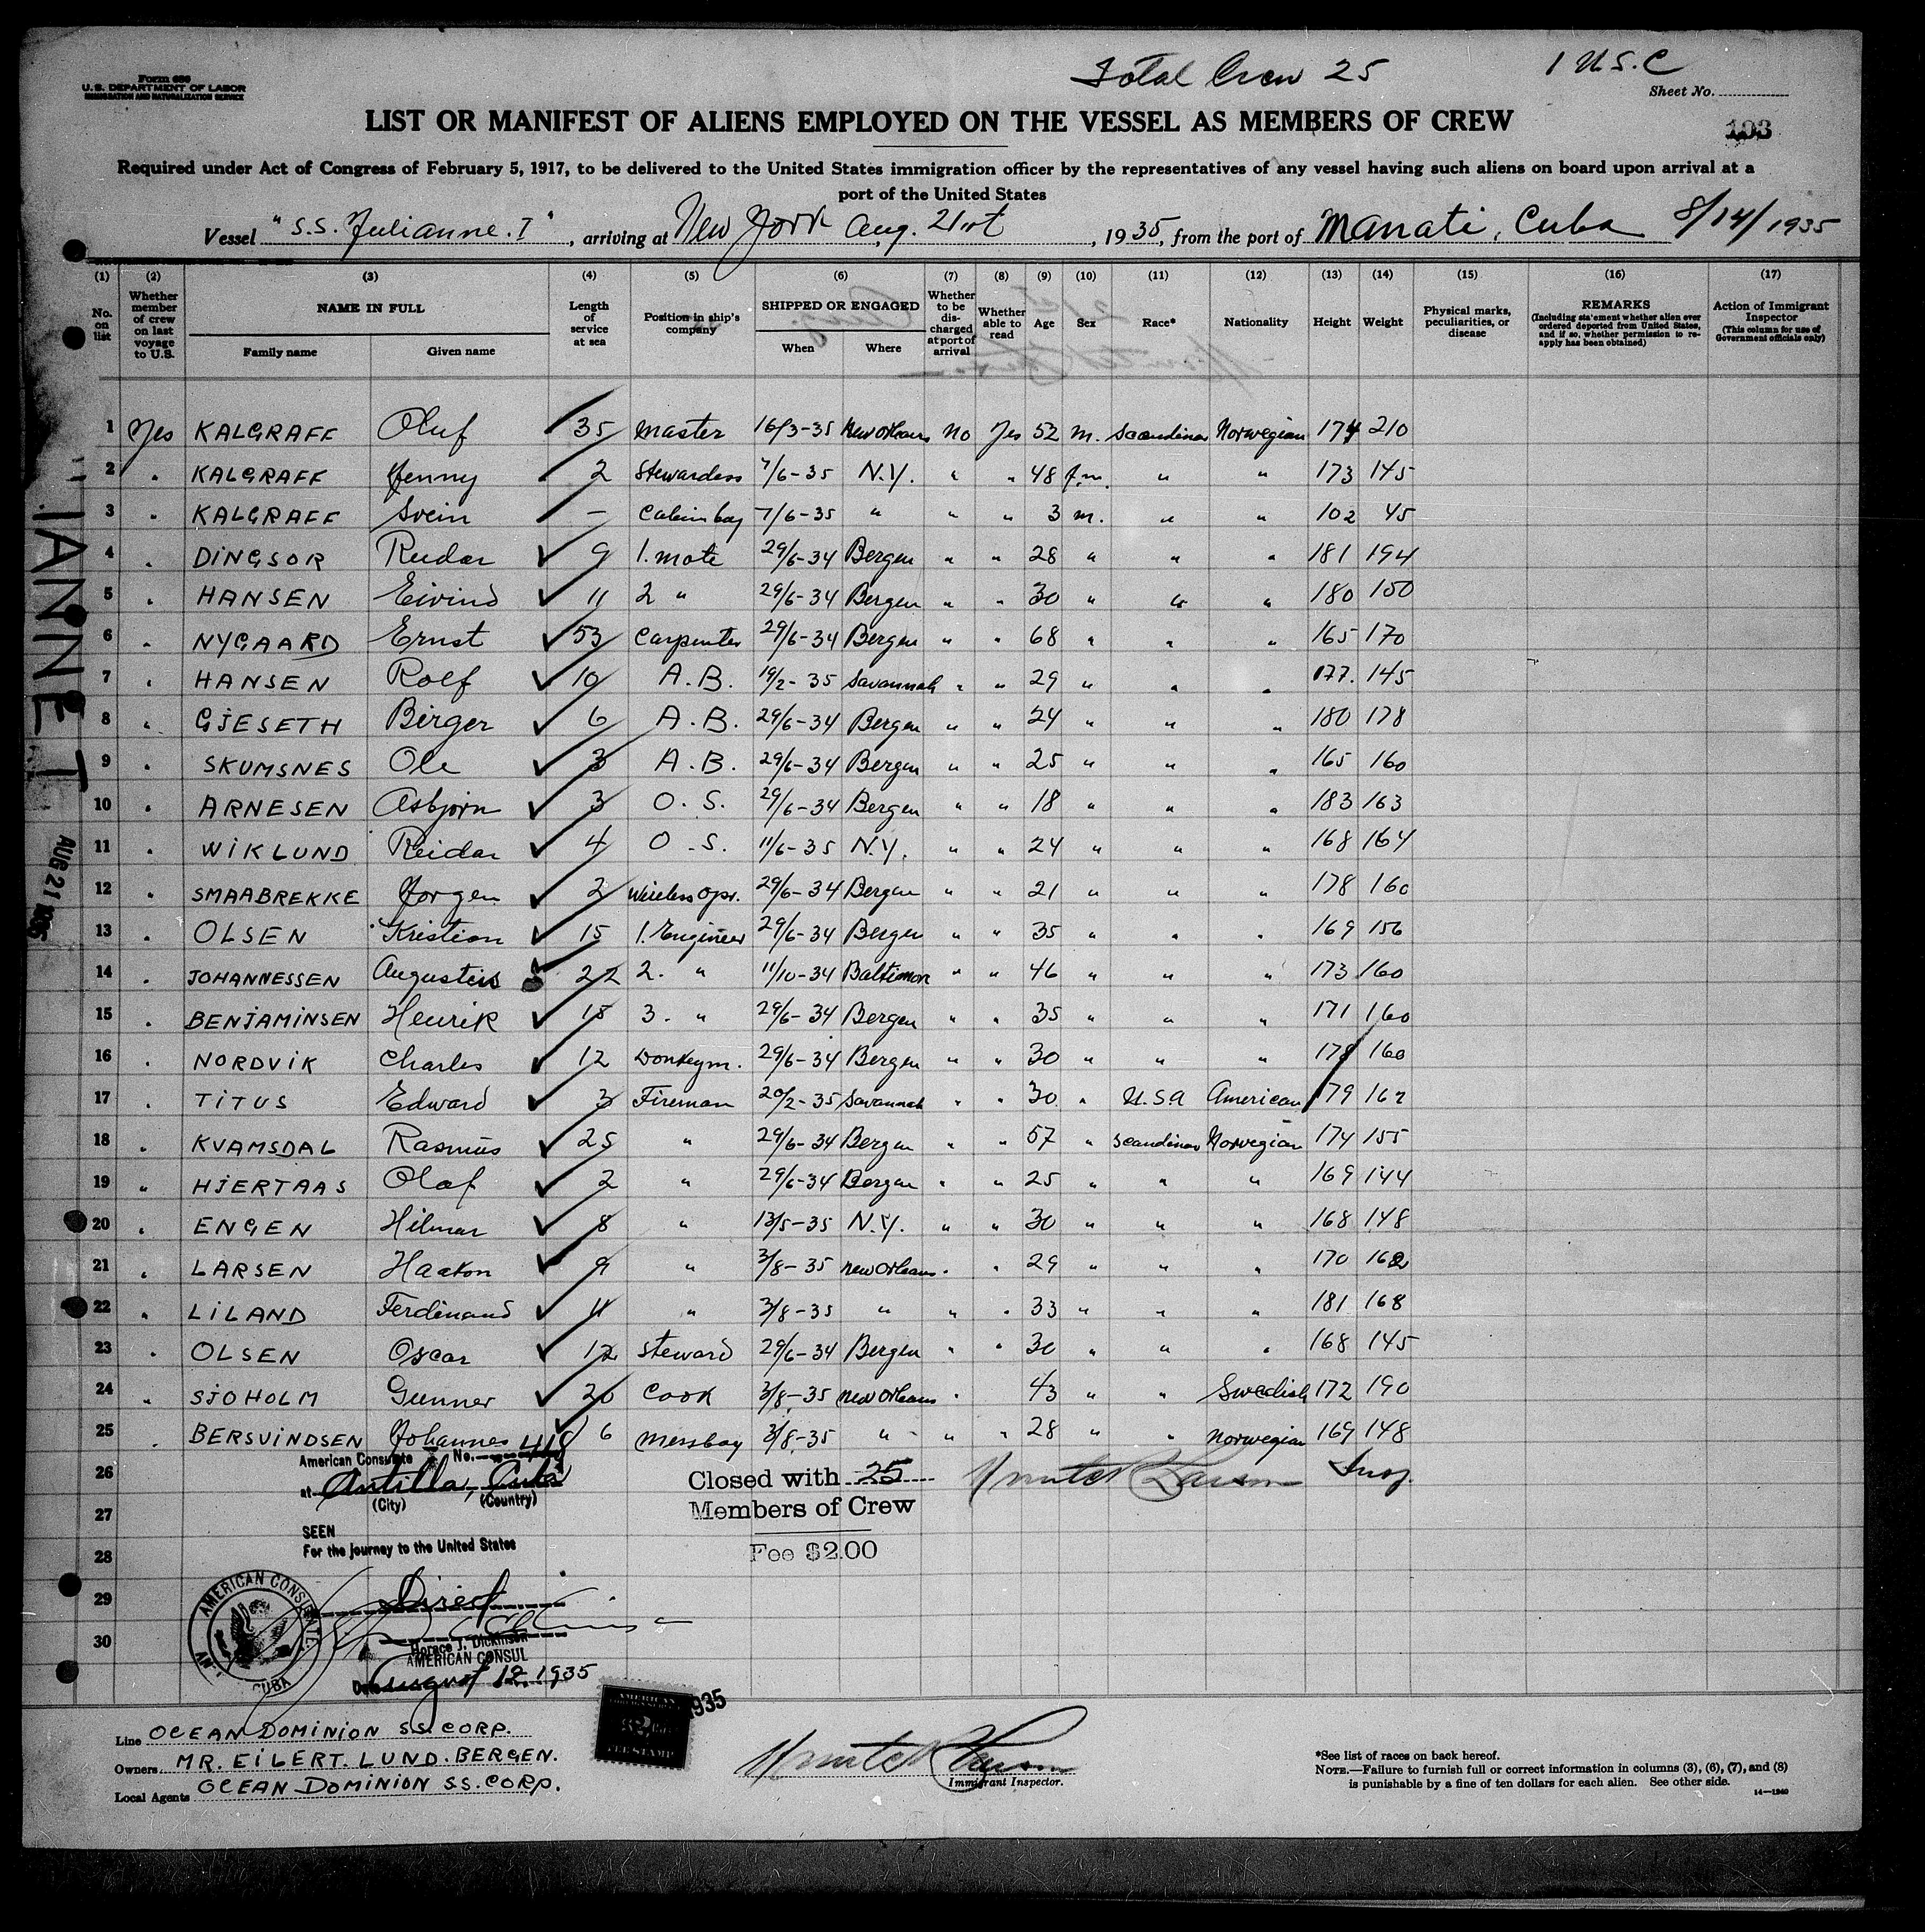 Total Crew 25
1 U.S.C
Form 686
U.S. DEPARTMENT OF LABOR
IMMIGRATION AND NATURALIZATION SERVICE
Sheet No.
LIST OR MANIFEST OF ALIENS EMPLOYED ON THE VESSEL AS MEMBERS OF CREW
103
Required under Act of Congress of February 5, 1917, to be delivered to the United States immigration officer by the representatives of any vessel having such aliens on board upon arrival at a
port of the United States
Vessel "S.S. Julianne. I", arriving at New York Aug. 21st, 1935, from the port of Manati, Cuba 8/14/1935
(1) (2) (3) (4) (5) (6) (7) (8) (9) (10) (11) (12) (13) (14) (15) (16) (17)
No. on list
Whether member of crew on last voyage to U.S.
NAME IN FULL
Family name
Given name
Length of service at sea
Position in ship's company
SHIPPED OR ENGAGED
When
Where
Whether to be discharged at port of arrival
Whether able to read
Age
Sex
Race*
Nationality
Height
Weight
Physical marks, peculiarities, or disease
REMARKS
(Including statement whether alien ever ordered deported from United States, and if so, whether permission to re-apply has been obtained)
Action of Immigrant Inspector
(This column for use of Government officials only)
1 Yes KALGRAFF Oluf 35 Master 16/3-35 New Orleans No Yes 52 m. Scandinav Norwegian 174 210
2 " KALGRAFF Jenny 2 Stewardess 7/6-35 N.Y. " " 48 f.m. " " 173 145
3 " KALGRAFF Svein - Cabinboy 7/6-35 " " " 3 m. " " 102 45
4 " DINGSOR Reidar 9 1. mate 29/6-34 Bergen " " 28 " " " 181 194
5 " HANSEN Eivind 11 2 " 29/6-34 Bergen " " 30 " " " 180 150
6 " NYGAARD Ernst 53 Carpenter 29/6-34 Bergen " " 68 " " " 165 170
7 " HANSEN Rolf 10 A.B. 19/2-35 Savannah " " 29 " " " 177. 145
8 " GJESETH Birger 6 A.B. 29/6-34 Bergen " " 24 " " " 180 178
9 " SKUMSNES Ole 3 A.B. 29/6-34 Bergen " " 25 " " " 165 160
10 " ARNESEN Asbjorn 3 O.S. 29/6-34 Bergen " " 18 " " " 183 163
11 " WIKLUND Reidar 4 O.S. 11/6-35 N.Y. " " 24 " " " 168 164
12 " SMAABREKKE Jorgen 2 Wireless opr. 29/6-34 Bergen " " 21 " " " 178 160
13 " OLSEN Kristian 15 1. Engineer 29/6-34 Bergen " " 35 " " " 169 156
14 " JOHANNESSEN Augustin 22 2. " 11/10-34 Baltimore " " 46 " " " 173 160
15 " BENJAMINSEN Henrik 15 3. " 29/6-34 Bergen " " 35 " " " 171 160
16 " NORDVIK Charles 12 Donkeym. 29/6-34 Bergen " " 30 " " " 178 160
17 " TITUS Edward 3 Fireman 20/2-35 Savannah " " 30 " U.S.A American 179 162
18 " KVAMSDAL Rasmus 25 " 29/6-34 Bergen " " 57 " Scandinav Norwegian 174 155
19 " HJERTAAS Olaf 2 " 29/6-34 Bergen " " 25 " " " 169 144
20 " ENGEN Hilmar 8 " 13/5-35 N.Y. " " 30 " " " 168 148
21 " LARSEN Haakon 9 " 3/8-35 New Orleans " " 29 " " " 170 162
22 " LILAND Ferdinand 11 " 3/8-35 " " " 33 " " " 181 168
23 " OLSEN Oscar 12 Steward 29/6-34 Bergen " " 30 " " " 168 145
24 " SJOHOLM Gunner 20 Cook 3/8-35 New Orleans " 43 " " Swedish 172 190
25 " BERSVINDSEN Johannes 6 Messboy 3/8-35 " " " 28 " " Norwegian 169 148
26
27
28
29
30
IANNE T
AUG 21 1935
American Consulate No. 418
at Antilla, Cuba
(City) (Country)
SEEN
For the journey to the United States
Direct
Horace J. Dickinson
AMERICAN CONSUL
Date August 12, 1935
AMERICAN CONSULATE
CUBA
Closed with 25
Members of Crew
Fee $2.00
Insp.
AMERICAN
FEE STAMP
1935
Line OCEAN DOMINION SS. CORP.
Owners MR. EILERT. LUND. BERGEN.
Local Agents OCEAN DOMINION SS. CORP.
Immigrant Inspector.
*See list of races on back hereof.
NOTE.—Failure to furnish full or correct information in columns (3), (6), (7), and (8)
is punishable by a fine of ten dollars for each alien. See other side.
14—1240